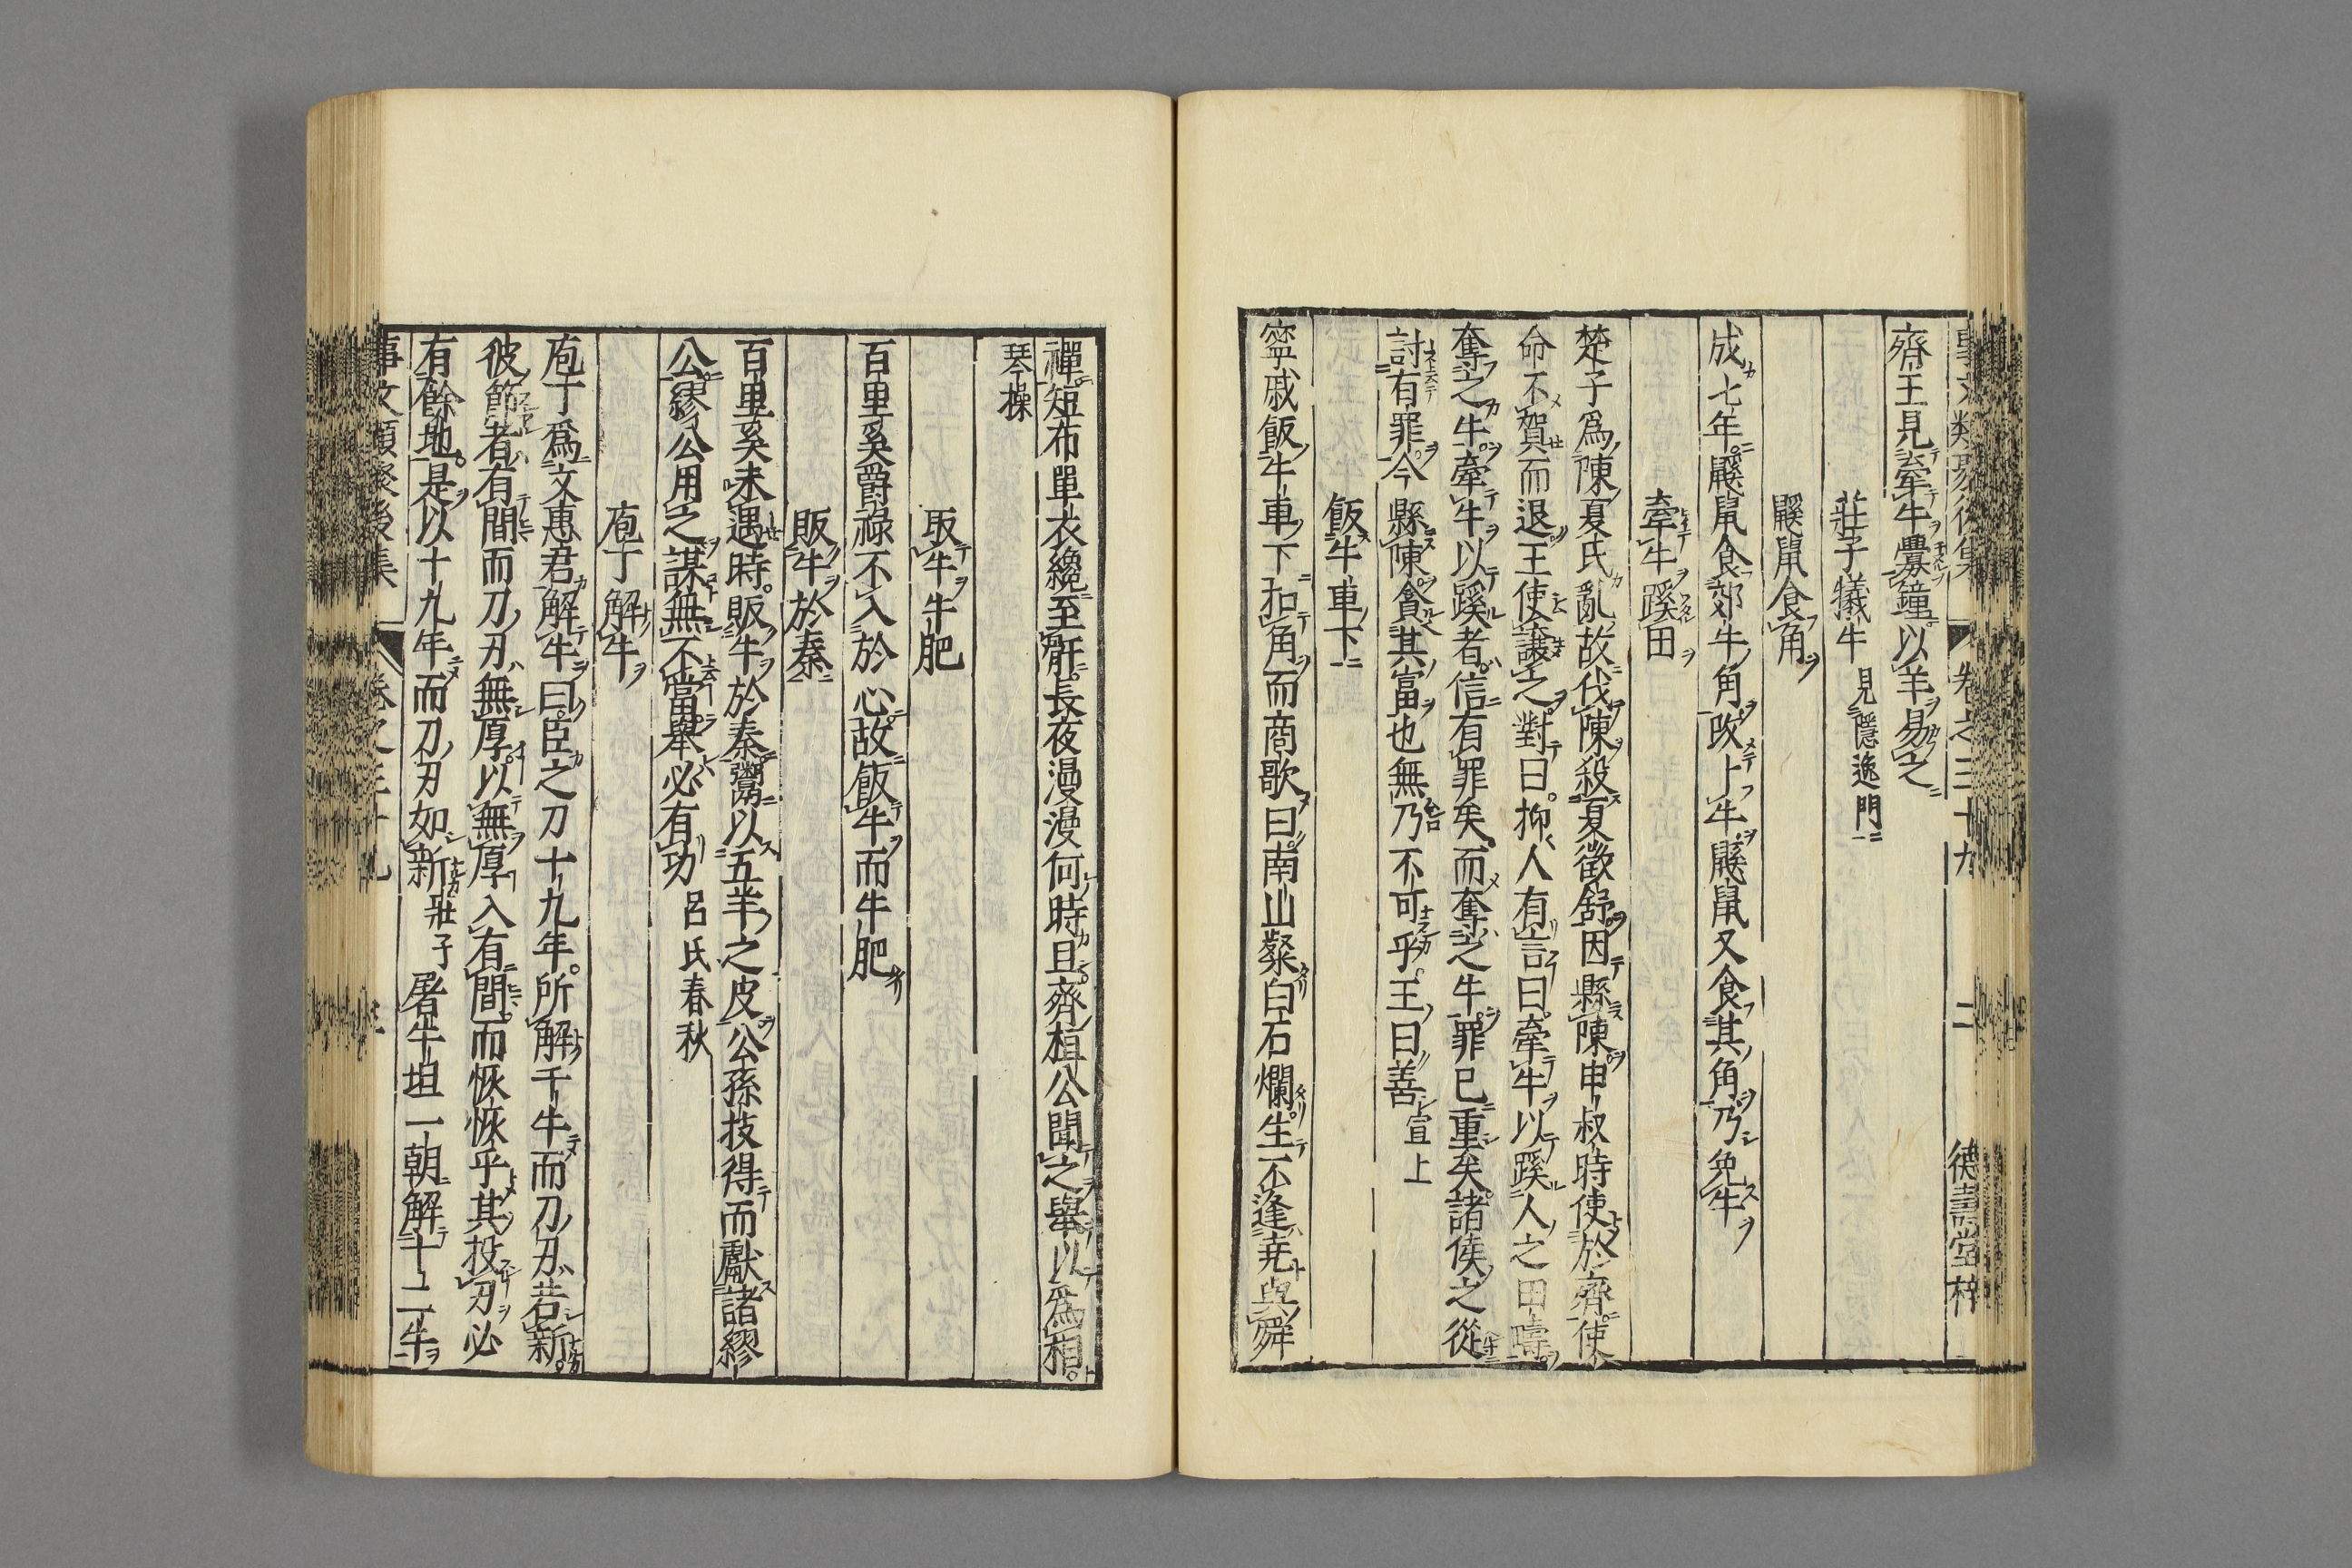 事文類聚後集 卷之三十九 二 德壽堂梓
齊王見牽牛釁鐘以羊易之
莊子犧牛 見隱逸門
鼷鼠食角
成七年鼷鼠食郊牛角改卜牛鼷鼠又食其角乃免牛
牽牛蹊田
楚子爲陳夏氏亂故伐陳殺夏徵舒因縣陳申叔時使於齊使
命不賀而退王使讓之對曰抑人有言曰牽牛以蹊人之田疇
奪之牛牽牛以蹊者信有罪矣而奪之牛罪已重矣諸侯之從
討有罪今縣陳貪其富也無乃不可乎王曰善 宣上
飯牛車下
寧戚飯牛車下扣角而商歌曰南山粲白石爛生不逢尭與舜
禪短布單衣纔至骭長夜漫漫何時旦齊桓公聞之舉以爲相
琴操
取牛牛肥
百里奚爵祿不入於心故飯牛而牛肥
販牛於秦
百里奚未遇時販牛於秦鬻以五羊之皮公孫技得而獻諸繆
公繆公用之謀無不當舉必有功 呂氏春秋
庖丁解牛
庖丁爲文惠君解牛曰臣之刀十九年所解千牛而刀刃若新
彼節者有間而刀刃無厚以無厚入有間而恢恢乎其投刃必
有餘地是以十九年而刀刃如新 莊子 屠牛坦一朝解十二牛
事文類聚後集 卷之三十九